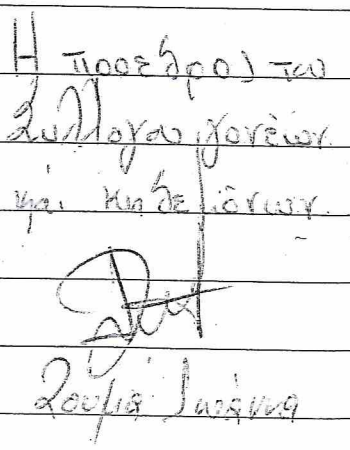 Η πρόεδρος του
Συλλόγου γονέων
και κηδεμόνων.
Ιωάννα